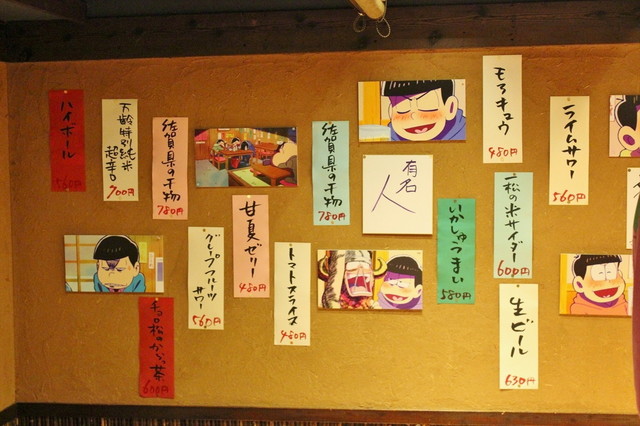 ハイボール
560円
万齢特別純米
超辛口
700円
佐賀県の干物
780円
チョロ松のからい茶
600円
グレープフルーツ
サワー
560円
甘夏ゼリー
480円
トマトスライス
480円
佐賀県の干物
780円
有名
人
いかしゅうまい
580円
モロキュウ
480円
一松の米サイダー
600円
生ビール
630円
ライムサワー
560円